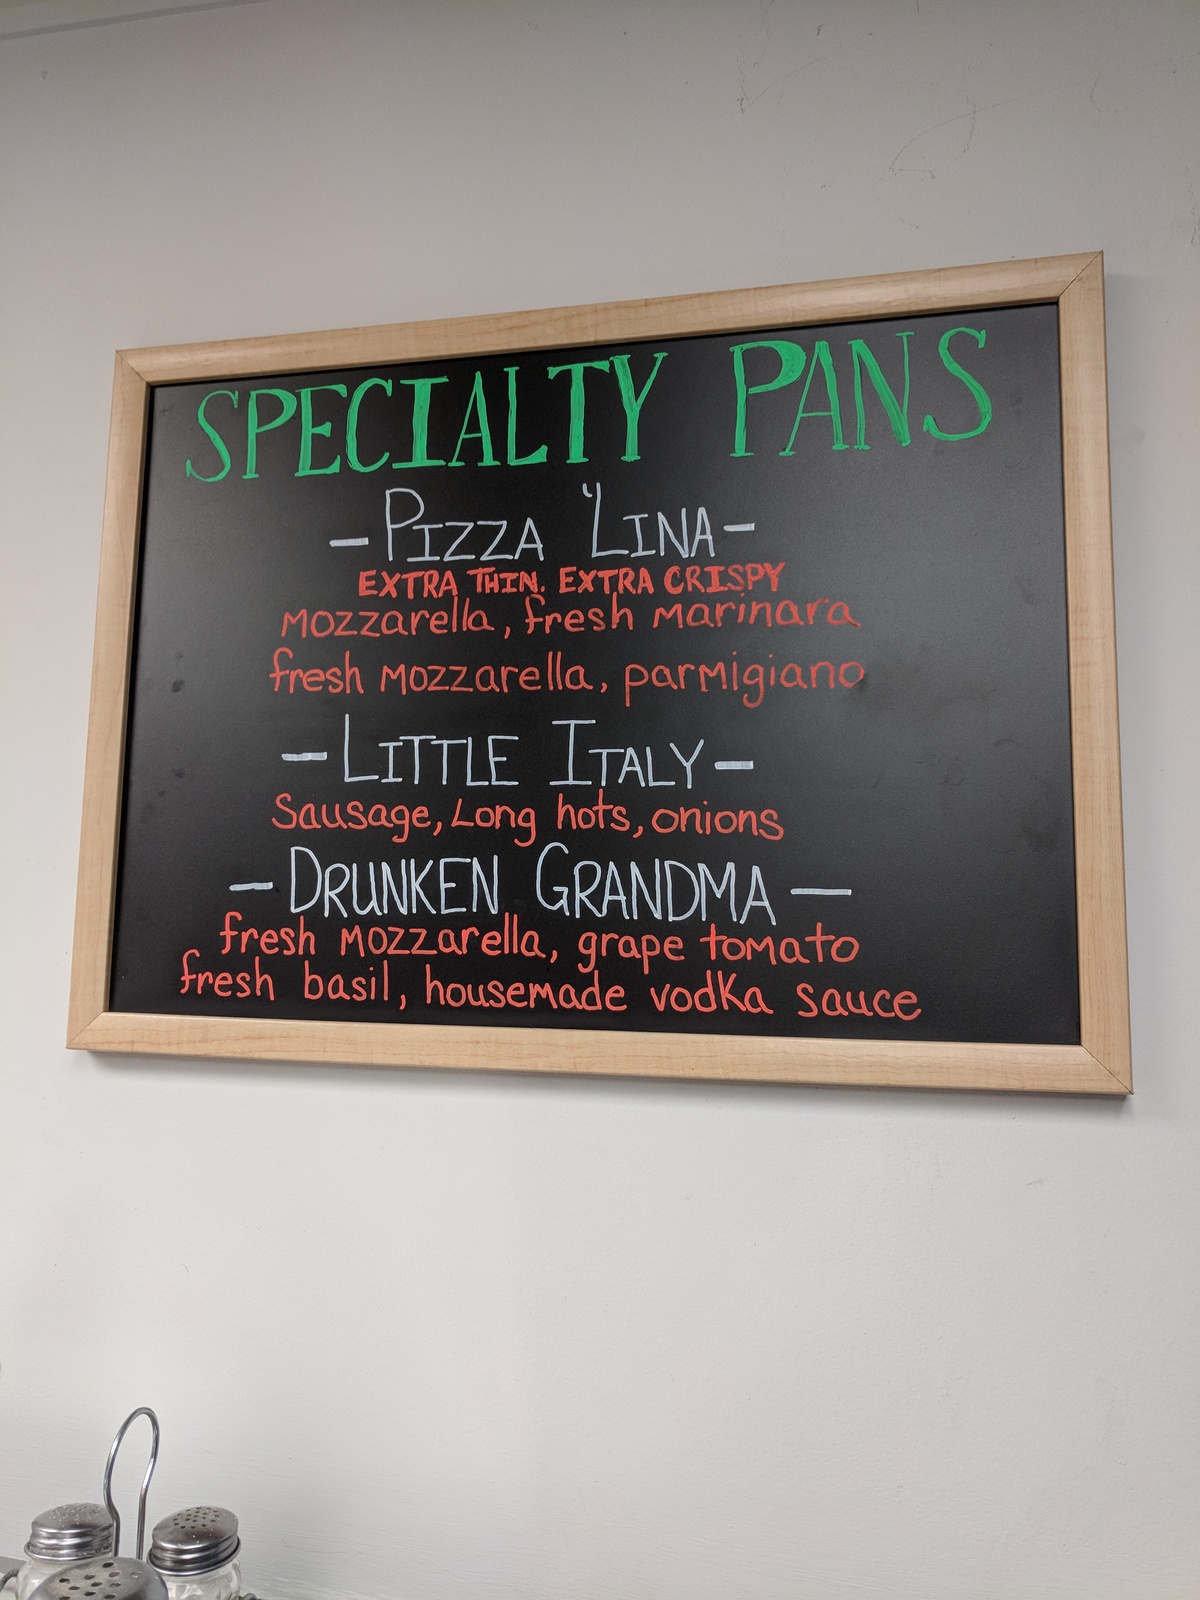 SPECIALTY PANS
- PIZZA "LINA -
EXTRA THIN. EXTRA CRISPY
mozzarella, fresh marinara
fresh mozzarella, parmigiano
- LITTLE ITALY -
Sausage, Long hots, onions
- DRUNKEN GRANDMA -
fresh mozzarella, grape tomato
fresh basil, housemade vodka sauce